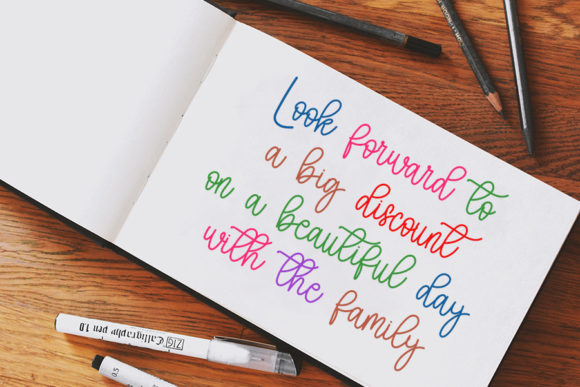 Look forward to
a big discount
on a beautiful day
with the family
ZIG Calligraphy pen 1.0
0.5